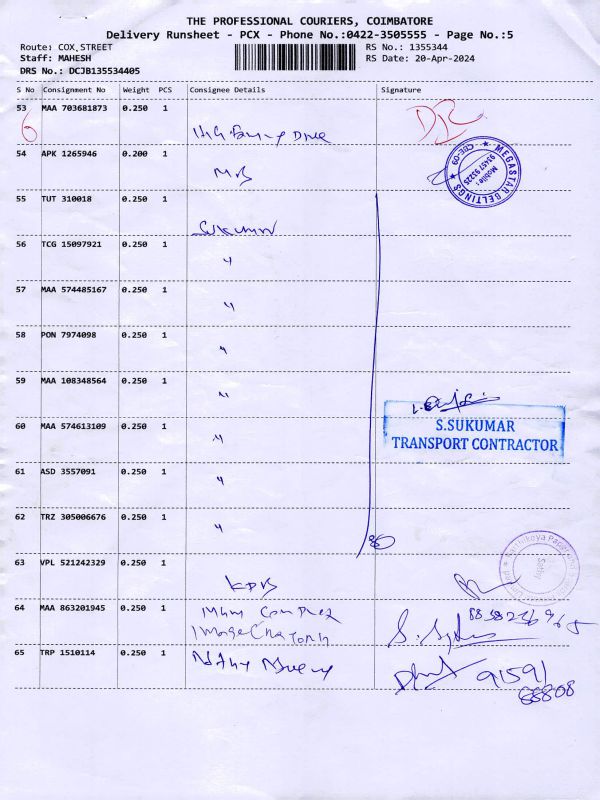 THE PROFESSIONAL COURIERS, COIMBATORE
Delivery Runsheet - PCX - Phone No.:0422-3505555 - Page No.:5
Route: COX STREET
RS No.: 1355344
Staff: MAHESH
RS Date: 20-Apr-2024
DRS No.: DCJB135534405
S No Consignment No Weight PCS Consignee Details Signature
53 MAA 703681873 0.250 1
6
54 APK 1265946 0.200 1
MEGASTAR BELTINGS
CBE-09
Mobile:
55 TUT 310018 0.250 1
Sukumar
56 TCG 15097921 0.250 1
"
57 MAA 574485167 0.250 1
"
58 PON 7974098 0.250 1
"
59 MAA 108348564 0.250 1
"
S.SUKUMAR
TRANSPORT CONTRACTOR
60 MAA 574613109 0.250 1
"
61 ASD 3557091 0.250 1
"
62 TRZ 305006676 0.250 1
"
63 VPL 521242329 0.250 1
KPB
64 MAA 863201945 0.250 1
Complex
65 TRP 1510114 0.250 1
91591